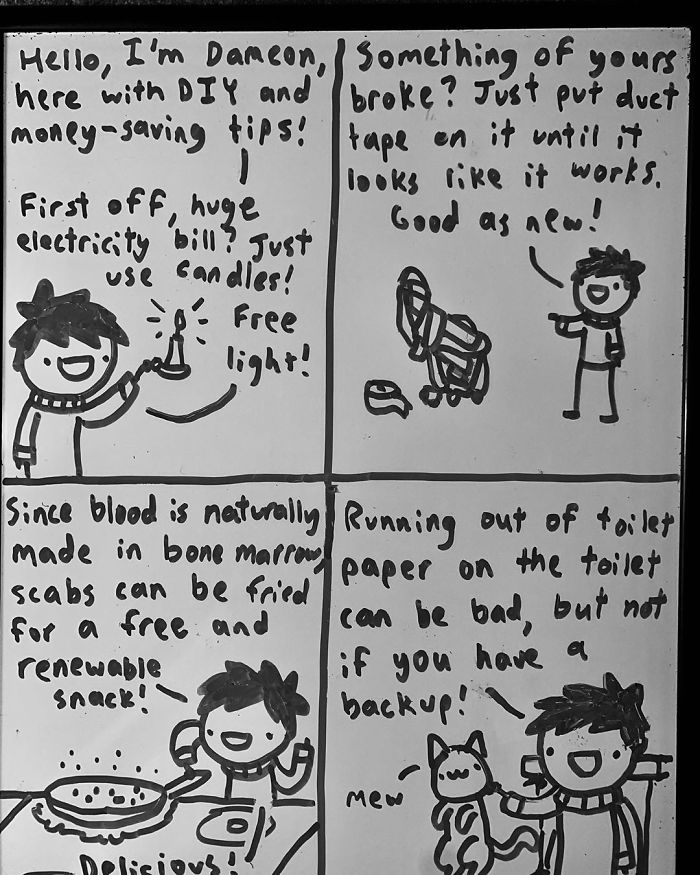 Hello, I'm Dameon,
here with DIY and
money-saving tips!
First off, huge
electricity bill? Just
use candles!
Free
light!
Something of yours
broke? Just put duct
tape on it until it
looks like it works.
Good as new!
Since blood is naturally
made in bone marrow,
scabs can be fried
for a free and
renewable
snack!
Delicious!
Running out of toilet
paper on the toilet
can be bad, but not
if you have a
backup!
mew